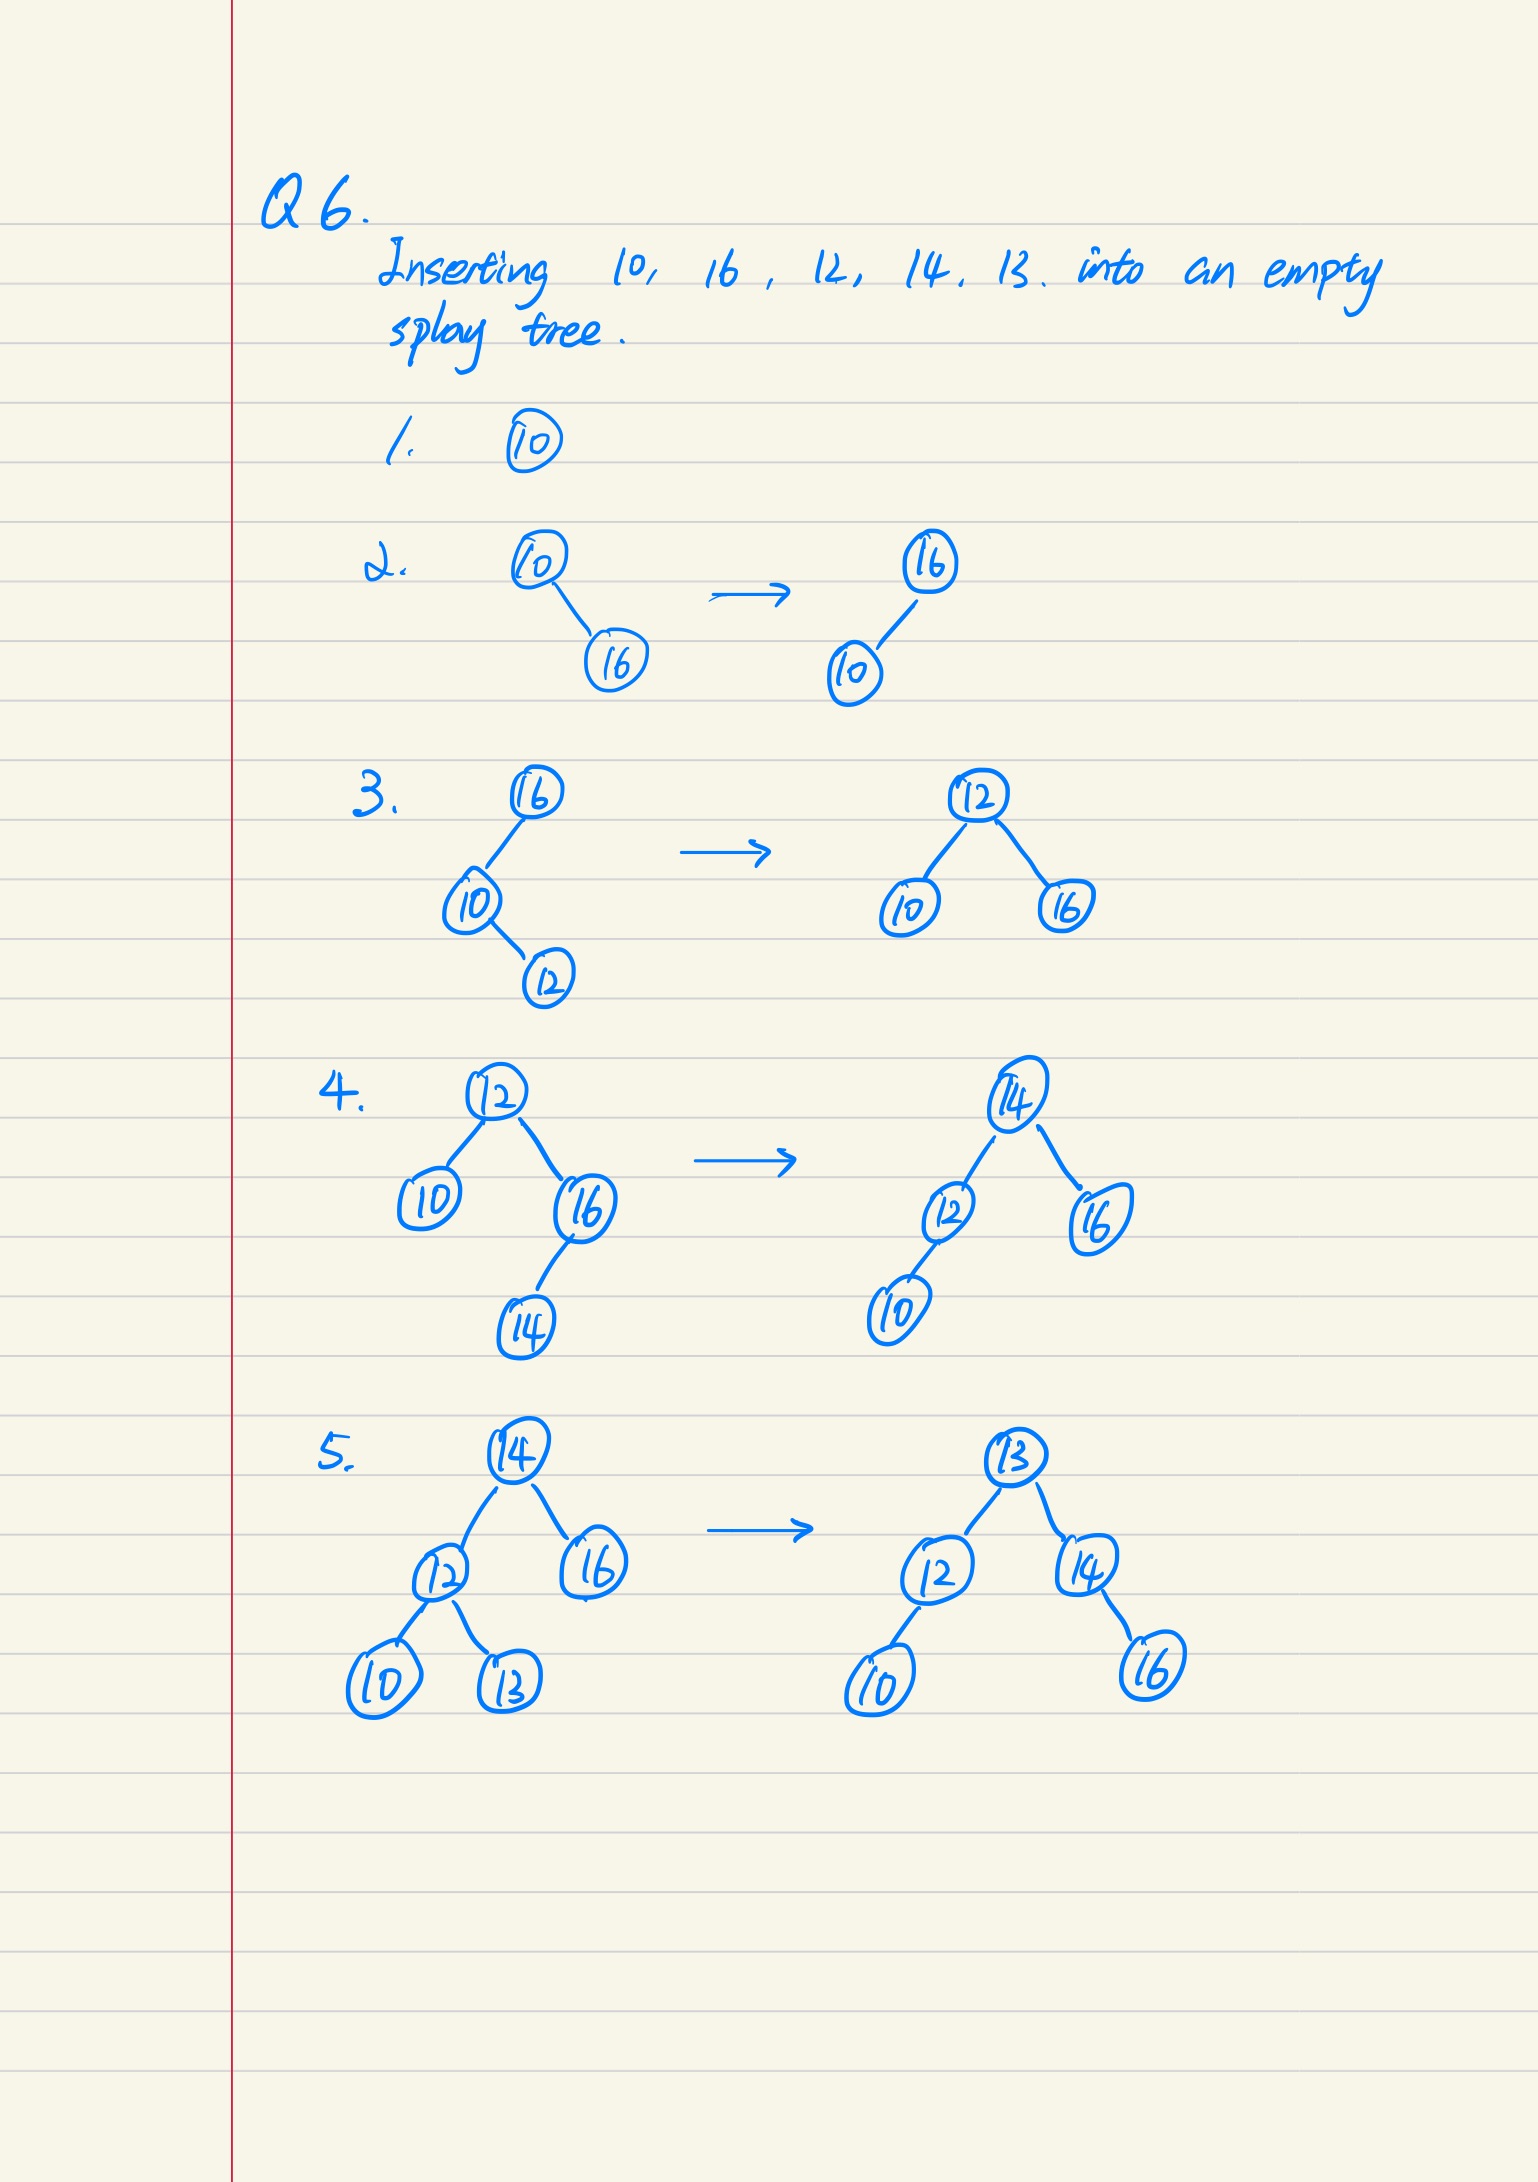 Q6.
Inserting 10, 16, 12, 14, 13. into an empty
splay tree.
1. 10
2. 10 → 16
16 10
3. 16 → 12
10 10 16
12
4. 12 → 14
10 16 12 16
14 10
5. 14 → 13
12 16 12 14
10 13 10 16